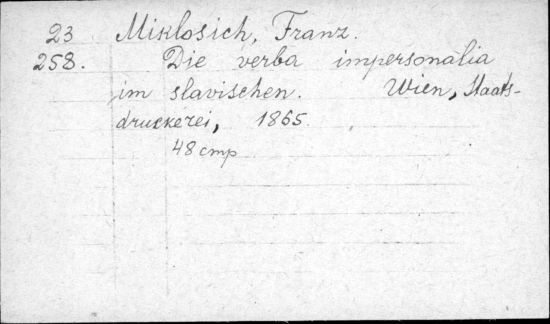 23 Miklosich, Franz.
258. Die verba impersonalia
im slavischen. Wien, Staats-
druckerei, 1865.
48 стр